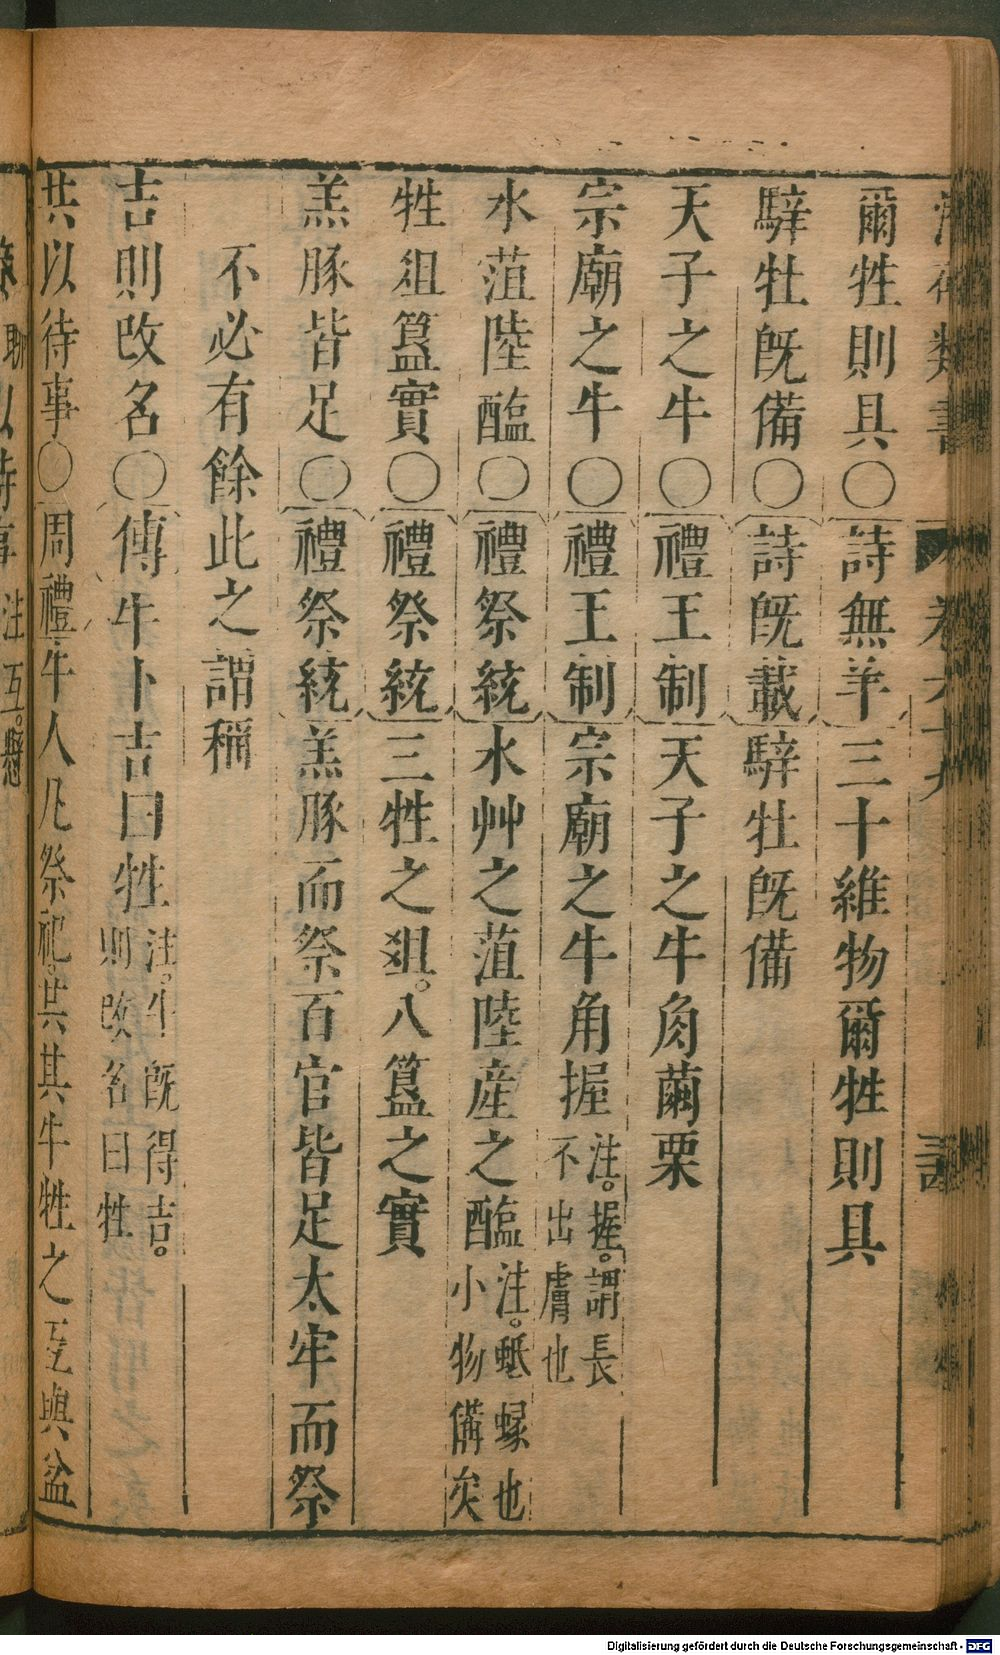 爾牲則具○詩無羊三十維物爾牲則具
騂牡旣備○詩旣載騂牡旣備
天子之牛○禮王制天子之牛角繭栗
宗廟之牛○禮王制宗廟之牛角握注。握。謂長不出膚也
水菹陸醢○禮祭統水艸之菹陸産之醢注。蚳蝝也小物備矣
牲俎簋實○禮祭統三牲之俎。八簋之實
羔豚皆足○禮祭統羔豚而祭百官皆足太牢而祭
不必有餘此之謂稱
吉則改名○傳牛卜吉曰牲注。牛旣得吉。則改名曰牲
共以待事○周禮牛人凡祭祀。共其牛牲之互與盆
以待事注互。懸
Digitalisierung gefördert durch die Deutsche Forschungsgemeinschaft - DFG